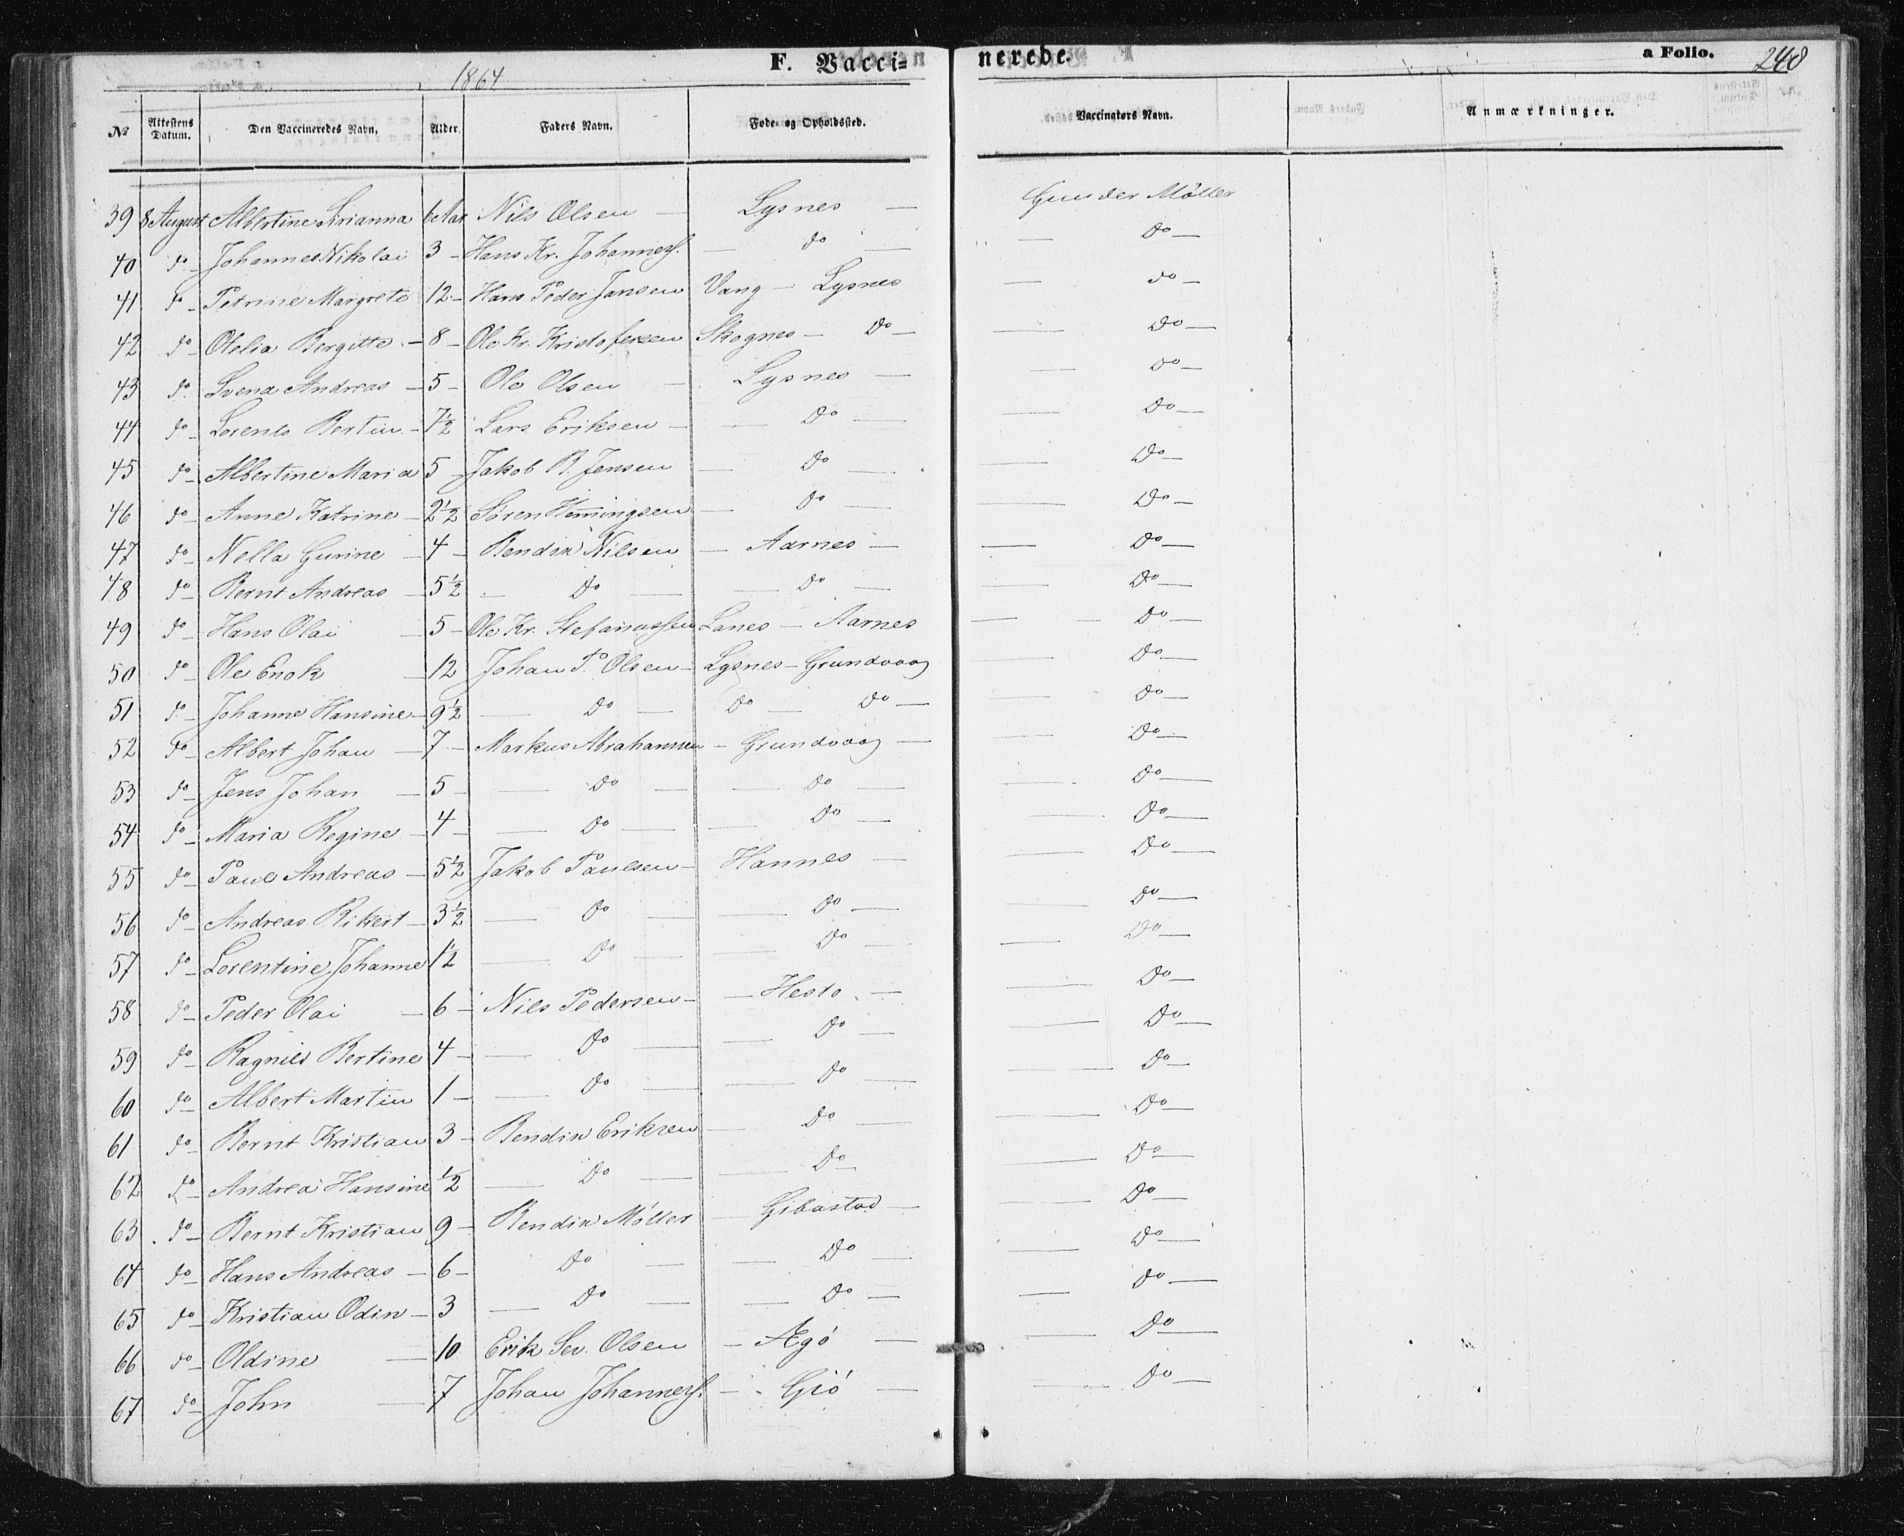 F. Vacci- nerede. a Folio. 248
1864
No Attestens Datum. Den Vaccineredes Navn, Alder. Faders Navn. Føde- og Opholdssted. Vaccinators Navn. Anmærkninger.
39 8 August Albertine Arianna 6 Aar Nils Olsen — Lysnes — Gunder Møller
40 do Johannes Nikolai 3 — Hans Kr. Johannesf. — do — — Do —
41 do Petrine Margrete 12 — Hans Peder Jansen Vang — Lysnes — do —
42 do Olelia Bergitte — 8 — Ole Kr. Kristofersen Skognes — Do — — Do —
43 do Svend Andreas — 5 — Ole Olsen — Lysnes — — Do —
44 do Lorents Bertin — 7½ Lars Eriksen — — Do — — Do —
45 do Albertine Maria 5 — Jakob B. Jensen — Do — — Do —
46 do Anne Katrine — 2½ Sören Hemingsen — Do — — Do —
47 do Nella Gurine — 4 — Bendix Nilsen — Aarnes — — Do —
48 do Bernt Andreas — 5½ — Do — — Do — — Do —
49 do Hans Olai — 5 — Ole Kr. Stefanussen Lanes — Aarnes — Do —
50 do Ole Enok — 12 Johan P. Olsen — Lysnes — Grundvaag — Do —
51 do Johanne Hansine — 9½ — Do — Do — Do — — Do —
52 do Albert Johan — 7 — Markus Abrahamsen — Grundvaag — — Do —
53 do Jens Johan — 5 — — Do — — Do — — Do —
54 do Maria Regine — 4 — — Do — — Do — — Do —
55 do Paul Andreas — 5½ Jakob Paulsen — Hannes — — Do —
56 do Andreas Rikert — 3½ — Do — — Do — — Do —
57 do Lorentine Johanne ½ — Do — — Do — — Do —
58 do Peder Olai — 6 — Nils Pedersen — — Hesto — — Do —
59 do Ragnild Bertine 4 — — Do — — Do — — Do —
60 do Albert Martin 1 — — Do — — Do — — Do —
61 do Bernt Kristian 3 — Bendix Eriksen — Do — — Do —
62 do Andrea Hansine ½ — Do — — Do — — Do —
63 do Bernt Kristian 9 — Bendix Møller — Gibostad — — Do —
64 do Hans Andreas — 6 — Do — — Do — — Do —
65 do Kristian Odin — 3 — Do — — Do — — Do —
66 do Oldine — 10 Erik Sev. Olsen — Ægö — — Do —
67 do John — 7 Johan Johannesf. — Giö — — Do —